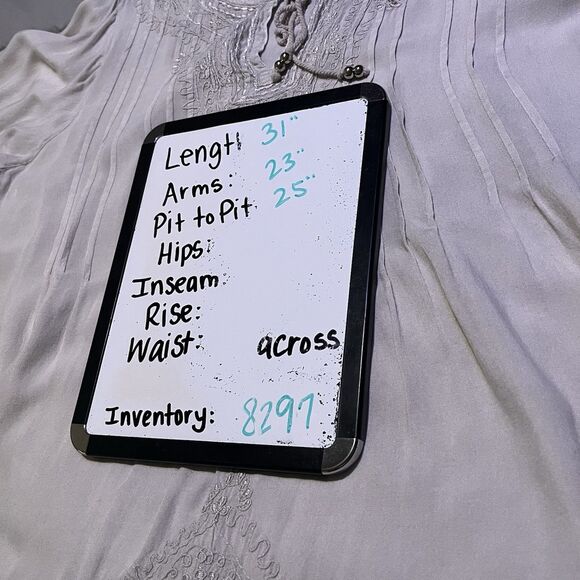 Lengtl 31"
Arms: 23"
Pit to Pit 25"
Hips:
Inseam
Rise:
Waist: across
Inventory: 8297